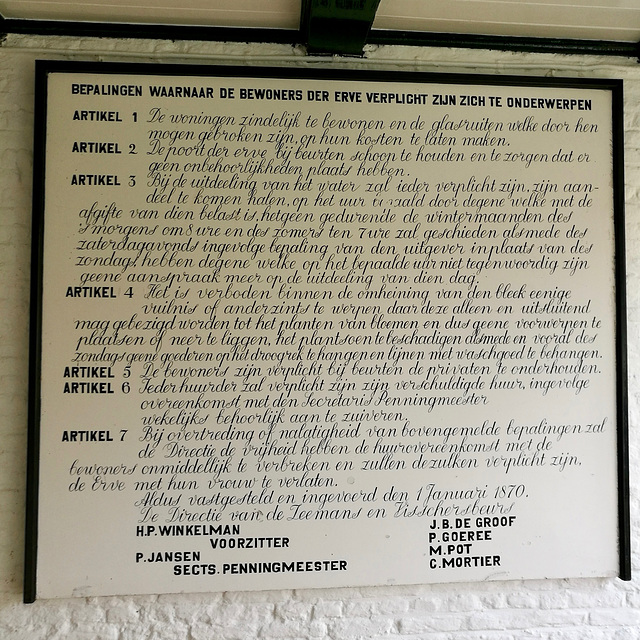 BEPALINGEN WAARNAAR DE BEWONERS DER ERVE VERPLICHT ZIJN ZICH TE ONDERWERPEN
ARTIKEL 1 De woningen zindelijk te bewonen en de glasruiten welke door hen
mogen gebroken zijn, op hun kosten te laten maken.
ARTIKEL 2 De poort der erve bij beurten schoon te houden en te zorgen dat er
geen onbehoorlijkheden plaats hebben.
ARTIKEL 3 Bij de uitdeeling van het water zal ieder verplicht zijn, zijn aan-
deel te komen halen, op het uur door degene welke met de
afgifte van dien belast is, hetgeen gedurende de wintermaanden des
's morgens om 8 ure en des zomers ten 7 ure zal geschieden alsmede des
zaterdagavonds ingevolge bepaling van den uitgever in plaats van des
zondags, hebben degene welke op het bepaalde uur niet tegenwoordig zijn
geene aanspraak meer op de uitdeeling van dien dag.
ARTIKEL 4 Het is verboden binnen de omheining van den bleek eenige
vuilnis of anderzints te werpen daar deze alleen en uitsluitend
mag gebezigd worden tot het planten van bloemen en dus geene voorwerpen te
plaatsen of neer te liggen, het plantsoen te beschadigen alsmede en vooral des
zondags geene goederen op het droogrek te hangen en lijnen met waschgoed te behangen.
ARTIKEL 5 De bewoners zijn verplicht bij beurten de privaten te onderhouden.
ARTIKEL 6 Ieder huurder zal verplicht zijn zijn verschuldigde huur, ingevolge
overeenkomst met den Secretaris Penningmeester
wekelijks behoorlijk aan te zuiveren.
ARTIKEL 7 Bij overtreding of nalatigheid van bovengemelde bepalingen zal
de Directie de vrijheid hebben de huurovereenkomst met de
bewoners onmiddellijk te verbreken en zullen dezulken verplicht zijn,
de Erve met hun vrouw te verlaten.
Aldus vastgesteld en ingevoerd den 1 Januari 1870.
De Directie van de Zeemans en Visschersbeurs
H.P. WINKELMAN
VOORZITTER
P. JANSEN
SECTS. PENNINGMEESTER
J.B. DE GROOF
P. GOEREE
M. POT
C. MORTIER